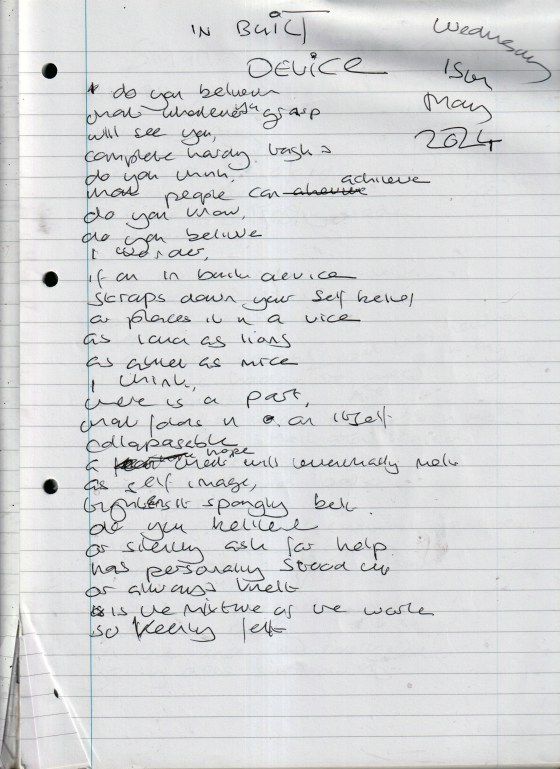 IN BUILT
DEVICE
Wednesday
15th
May
2024
do you believe
that whatever you grasp
will see you,
complete hardy tasks
do you think,
that people can achieve
do you know,
do you believe
I wonder,
if an in built device
straps down your self belief
or places it in a vice
as loud as lions
as quiet as mice
I think,
there is a part,
that folds in on itself
collapsable
a hope that will eventually melt
as self image,
tightens it spongly belt.
do you believe
or silently ask for help.
has personally stood up
or always knelt
is the mixture of the world
so keenly felt